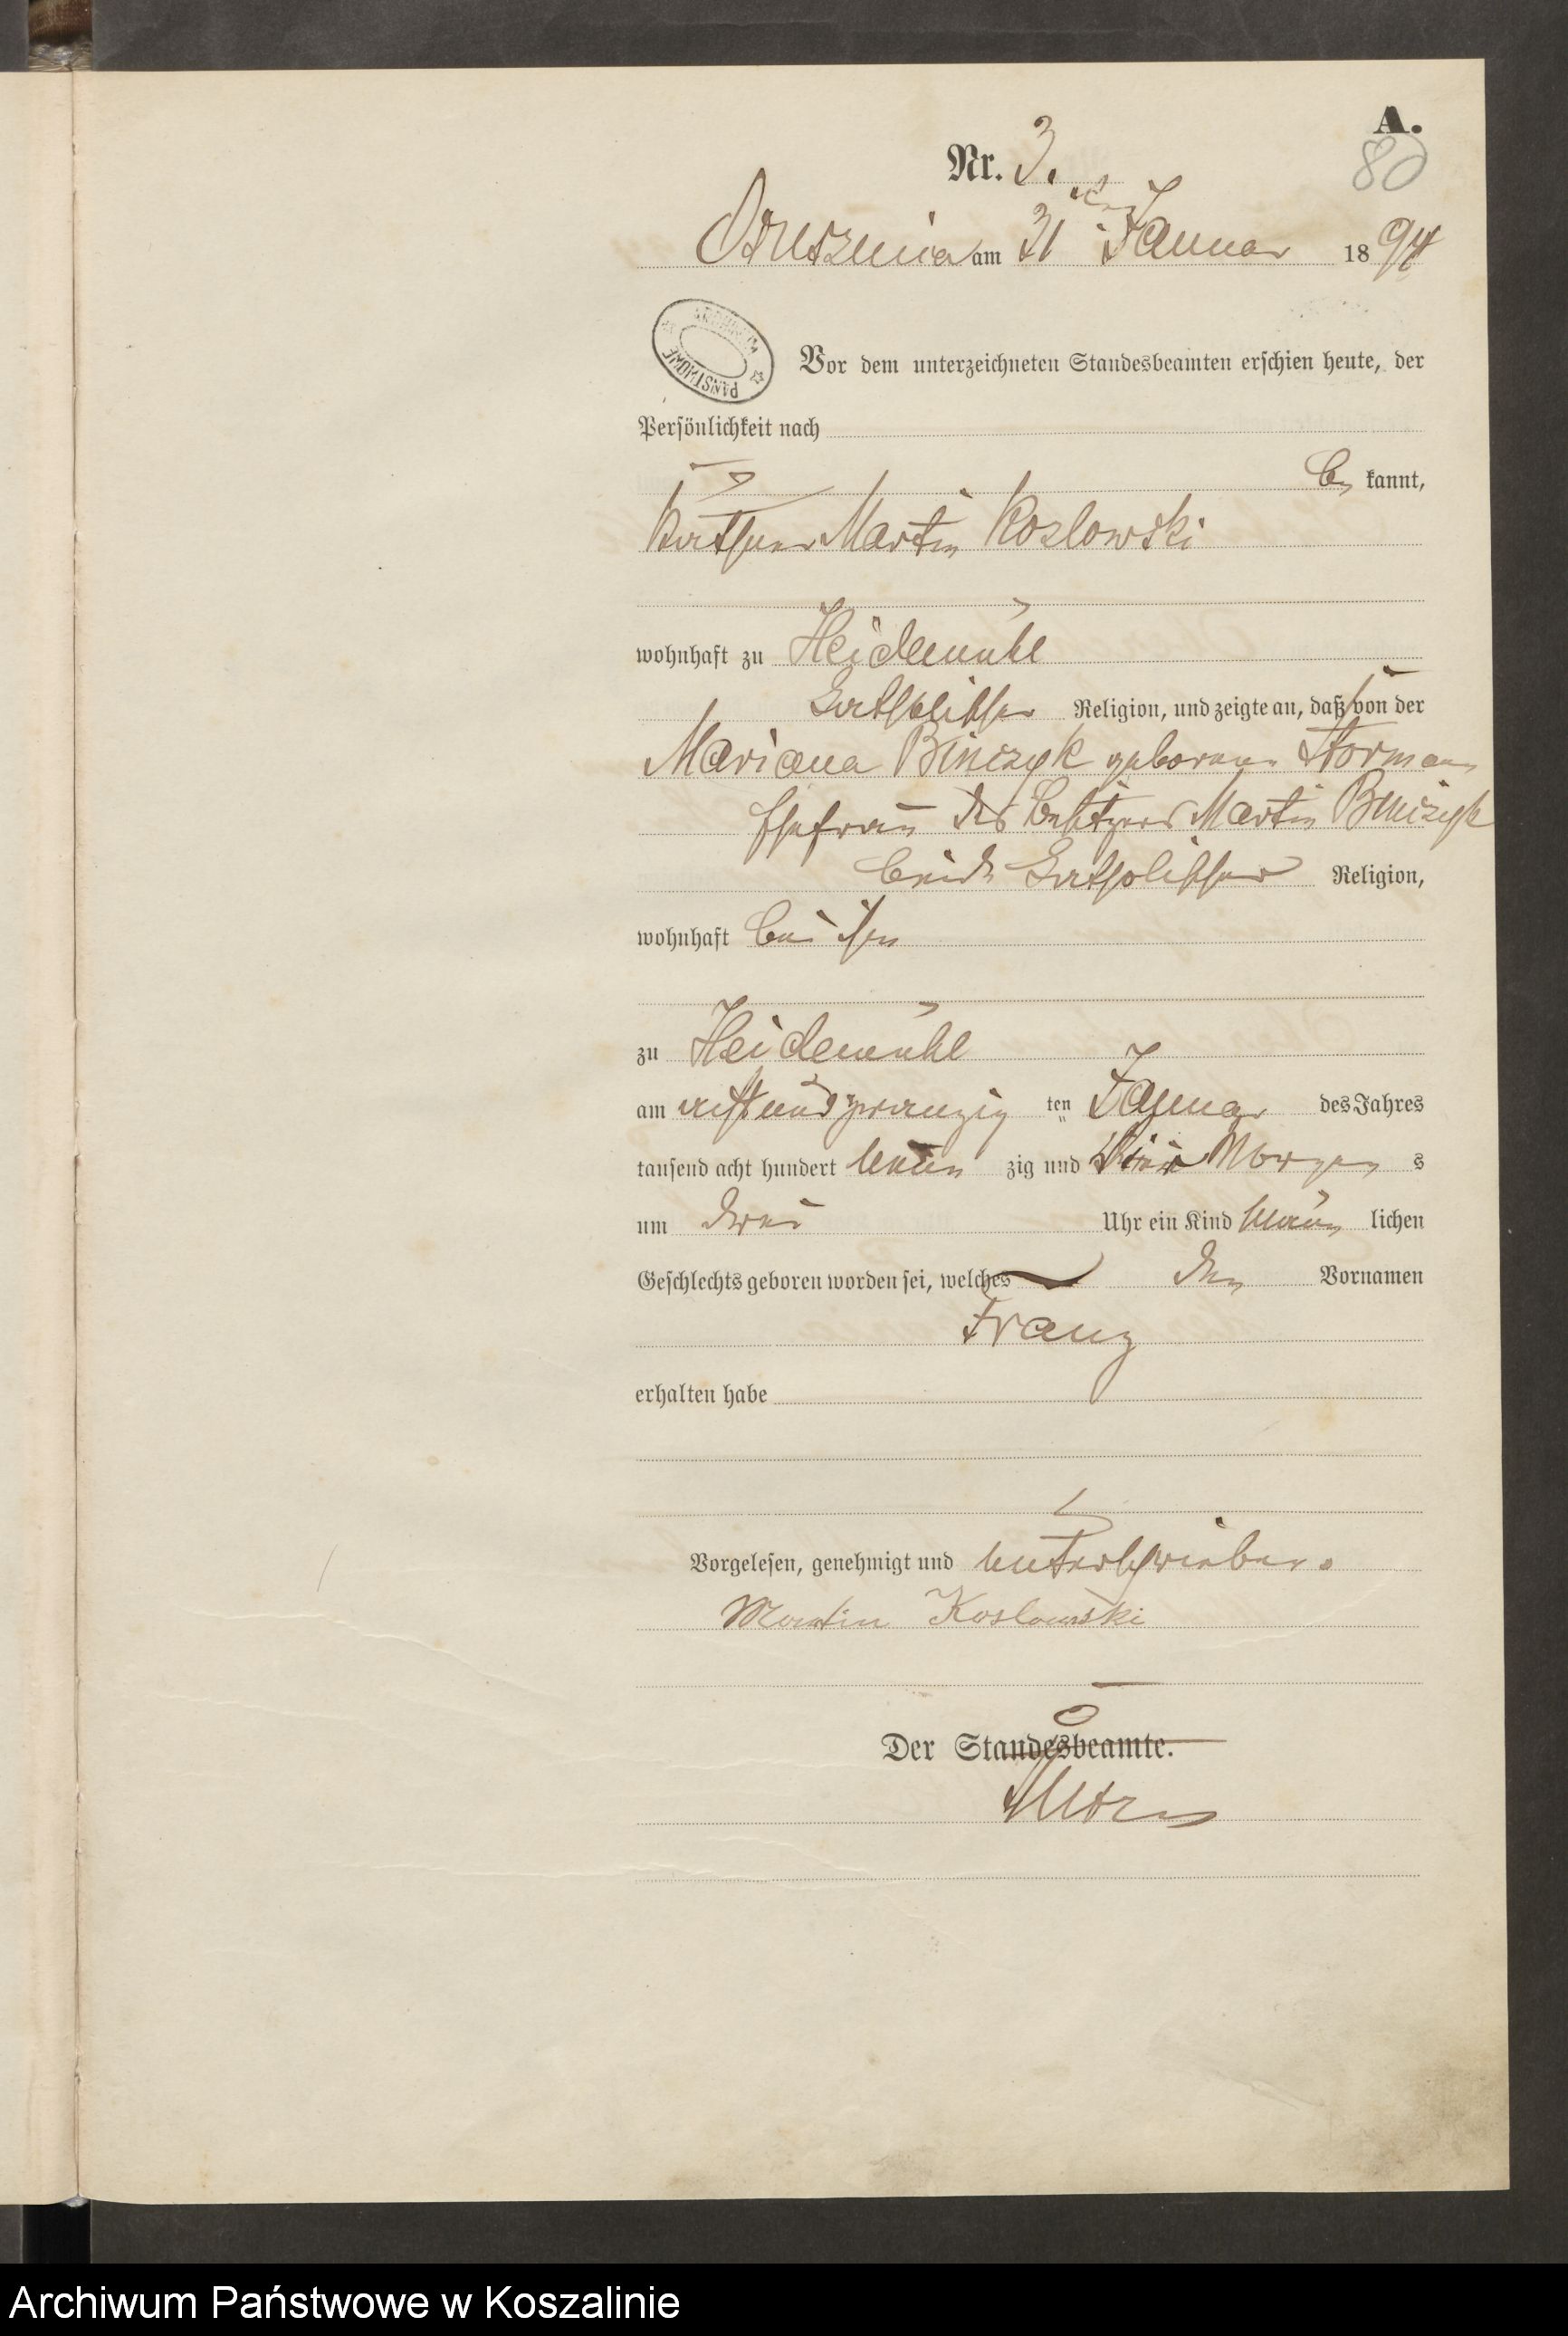 A.
80
Nr. 3.
am 31 ten Januar 1894
ARCHIWUM PAŃSTWOWE
Vor dem unterzeichneten Standesbeamten erschien heute, der
Persönlichkeit nach
be kannt,
Käthner Martin Kozlowski
wohnhaft zu Heidemühl
katholischer Religion, und zeigte an, daß von der
Mariana Binczyk geborene
Ehefrau des Besitzers Martin Binczyk
beide katholischer Religion,
wohnhaft bei ihm
zu Heidemühl
am acht und zwanzig ten Januar des Jahres
tausend acht hundert neun zig und vier Morgen s
um drei Uhr ein Kind männ lichen
Geschlechts geboren worden sei, welches den Vornamen
Franz
erhalten habe
Vorgelesen, genehmigt und unterschrieben.
Martin Koslowski
Der Standesbeamte.
Archiwum Państwowe w Koszalinie